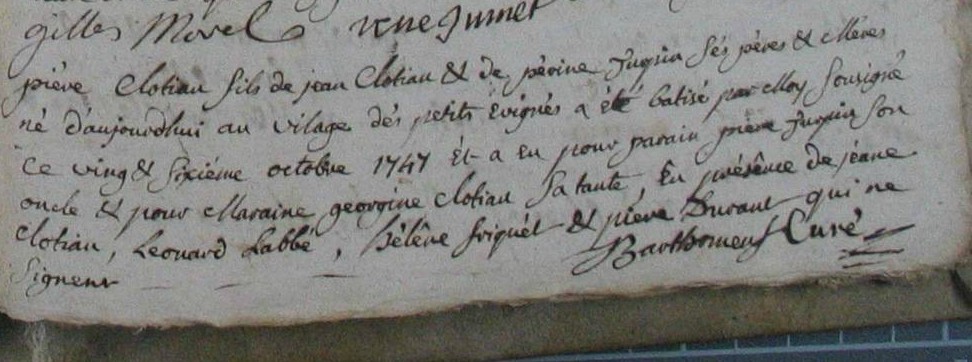 gilles Morel rene Jumet
piére Clotiau fils de jean Clotiau & de périne Jupin sés péres & Méres
né d'aujourdhui au vilage dés petits Evignés a été batisé par Moy Sousigné
Ce ving & sixiéme octobre 1747 Et a eu pour parain piére Jupin son
oncle & pour Maraine georgine Clotiau sa tante, En présênce de jeane
Clotiau, Leonard Labbé, hélêne friquét & piere Durant qui ne
signent Barthomeuf Curé